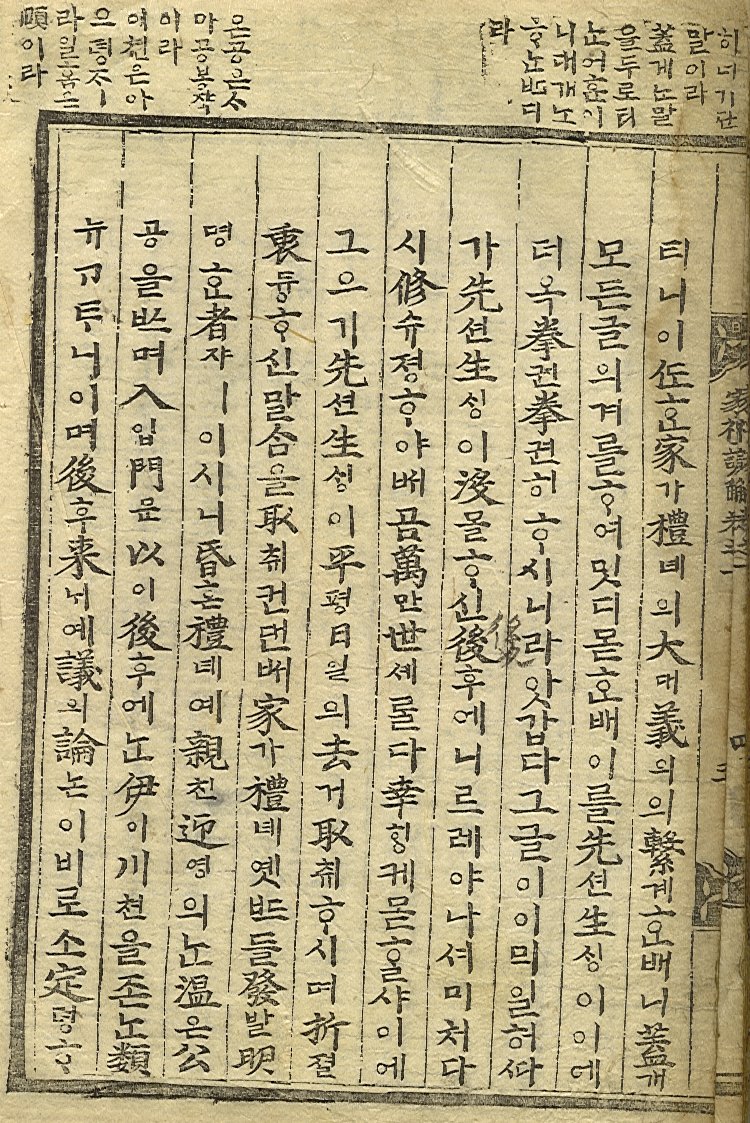 히 녀기단
말이라
蓋개ᄂᆞᆫ말
을두로텨
ᄂᆞᆫ어훈이
니대개ᄂᆞ
ᄒᆞᆫᄠᅳ디
라
온공은ᄉᆞ
마공봉쟉
이라
이쳔은아
ᄋᆞ뎡조ㅣ
라일홈은
頤이라
티니이ᄯᅩᄒᆞᆫ家가禮녜의大대義의의繫계ᄒᆞᆫ배니蓋개
모든글의겨를ᄒᆞ여밋디몯ᄒᆞᆫ배이를先션生ᄉᆡᆼ이이에
더옥拳권拳권히ᄒᆞ시니라앗갑다그글이이믜일허ᄯᅡ
가先션生ᄉᆡᆼ이沒몰ᄒᆞ신後후에니르레야나셔미처다
後
시修슈졍ᄒᆞ야ᄡᅥ곰萬만世셰를다幸ᄒᆡᆼ케몯ᄒᆞᆯ샤이에
그으기先션生ᄉᆡᆼ이平평日일의去거取취ᄒᆞ시며折졀
衷듕ᄒᆞ신말ᄉᆞᆷ을取취컨던ᄡᅥ家가禮녜옛ᄠᅳ들發발明
명ᄒᆞᆫ者쟈ㅣ이시니昏혼禮녜예親친迎영의ᄂᆞᆫ溫온公
공을ᄡᅳ며入입門문以이後후에ᄂᆞᆫ伊이川쳔을존ᄂᆞᆫ類
뉴ᄀᆞᄐᆞ니이며後후來ᄂᆡ예議의論논이비로소定뎡ᄒᆞ